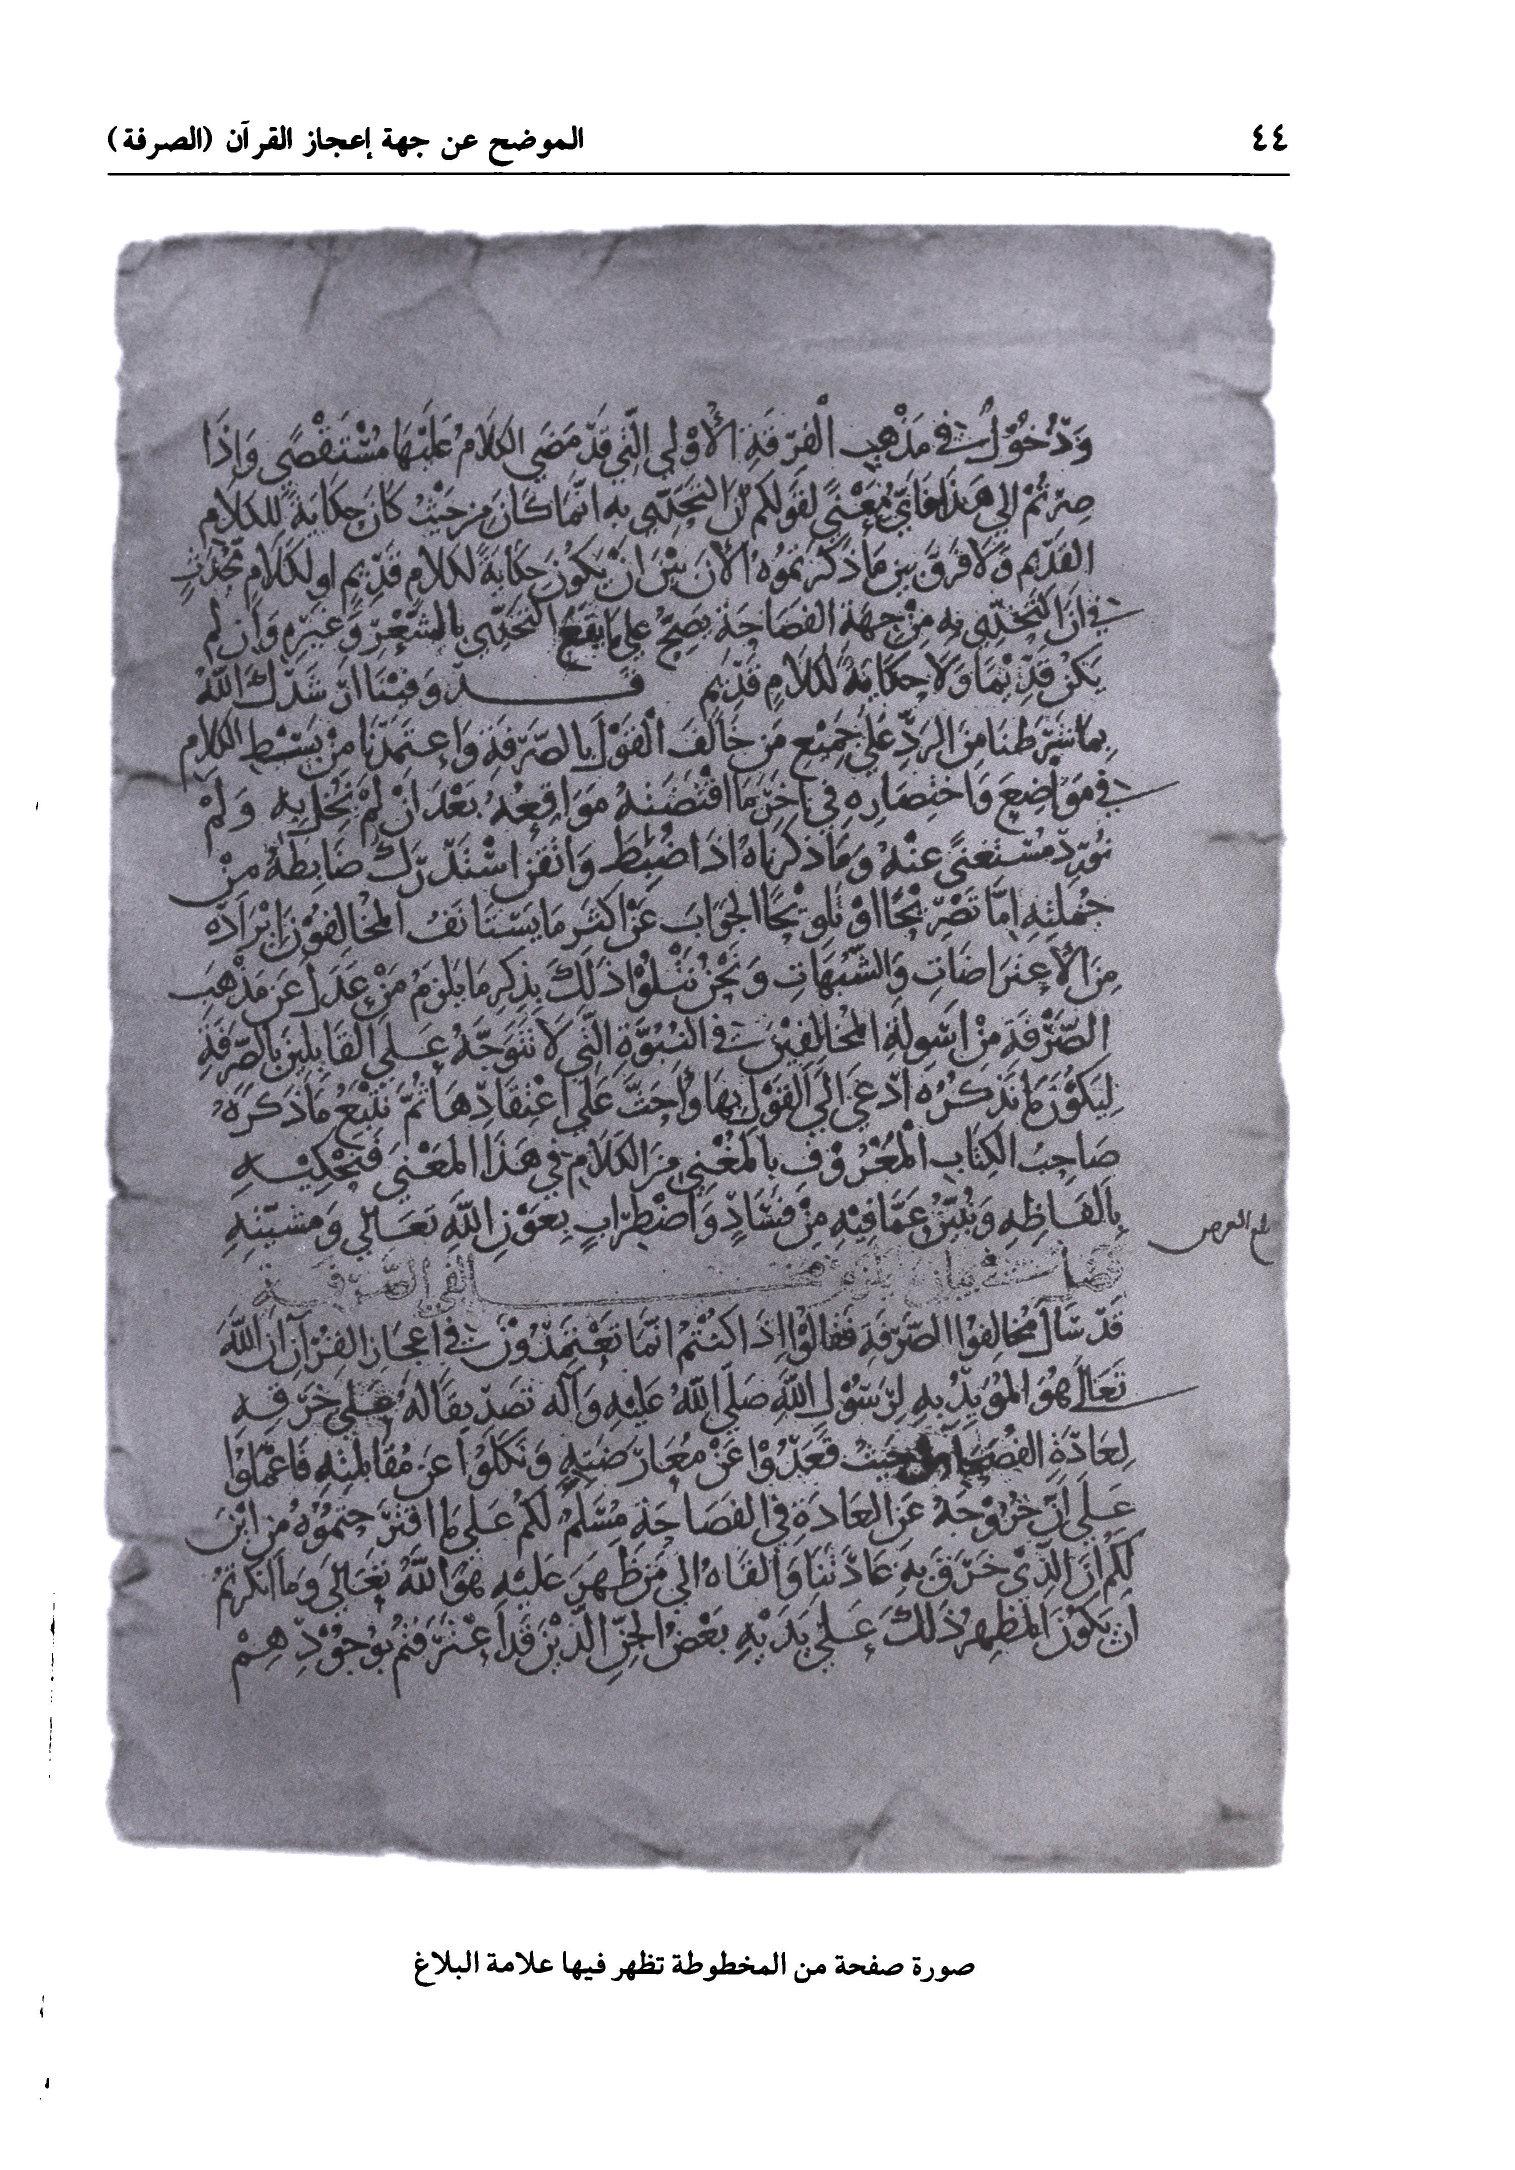 ٤٤ الموضح عن جهة إعجاز القرآن (الصرفة)
وَدُخُوْلٌ في مَذْهبِ الْفِرْقَةِ الأُوْلي الَّتِي قَدْ مَضَي الكَلَامُ عَلَيْهَا مُسْتَقْصًي وَإِذَا
صِرْتُمْ الي هَذَا فَايُّ مَعْنًي لِقَولكم انَّ التحَدِّي به انّما كَانَ مِنْ حَيْثُ كَانَ حِكَايَةً لِلكَلَامِ
القَدِيم وَلَا فَرْقَ بين مَا ذكرتمُوهُ الآنَ بَيْنَ انْ يَكُوْنَ حِكَايَةً لكَلَامٍ قَدْيمٍ او لكَلَامٍ مُحْدَثٍ
في انَ التحَدِّي به مِنْ جِهَة الفَصَاحَة يَصِحّ عَلي مَا يَقَعُ التحَدِّي بالشّعْرِ وَغيرِه وَان لم
يَكنْ قَدِيْمًا وَلَا حِكَايَةً لكَلَامٍ قَدِيْمٍ قَـــد وَفيْنَا ارْشَدَكَ اللّهُ
بِمَا شَرَطْنَا مِنَ الردِّ عَلي جَمِيْعِ مَن خَالَفَ الْقَوْلَ بِالصَّرْفَةِ وَاعتمَدْنَا مِنْ بَسْطِ الكَلَامِ
في مَوَاضِعَ وَاخْتِصَارِهِ في اخَرَ مَا اقْتَضَتْهُ مَوَاقِعُهُ بَعْدَ انْ لَمْ نُخْل بِهِ وَلَمْ
نُوْرِدْ مُسْتَغْنًي عَنْهُ وَمَا ذكَرْنَاهُ اذَا ضُبِطَ وَاتقِنَ اسْتَدْرَكَ ضَابِطُهُ مِنْ
جُمْلَتِهِ امَّا تَصْرِيْحًا اوْ تَلْوِيْحًا الجَوَابَ عَنْ اكثَرِ مَا يَسْتَانفُ المُخالِفُوْنَ ايْرَادَهُ
مِنَ الاعْتِرَاضَاتِ وَالشّبُهَاتِ وَنَحْنُ نَتْلُوا ذلكَ بذِكرِ مَا يَلزمُ مَنْ عَدَلَ عَنْ مَذْهَبِ
الصَّرْفَة مِنْ اسْولَةِ المُخالِفِيْنَ في النُّبُوَّةِ الَّتِي لَا تَتَوَجَّهُ عَلَي القَايلينَ بالصّرْفَةِ
لِيَكُوْنَ مَا نَذْكرُهُ ادْعَي الَي القَوْلِ بِهَا وَاحَثَّ عَلَي اعْتِقَادِهَا ثُمَّ نتبِعُ مَا ذَكَرَهُ
صَاحِبُ الكِتَابِ الْمَعْرُوْفِ بالمُغْنِي مِنَ الكَلَامِ في هَذَا المَعْنَي فَنَحْكِيْـهِ
بِالفَاظِهِ وَنُبيّنُ عَمَّا فِيْهِ مِنْ فَسَادٍ وَاضْطِرَابٍ بِعَوْنِ اللّهِ تَعَالي وَمَشيّتِهِ
فصل في مالفي الصّرفة
قَدْ سَالَ مُخالِفُوا الصّرْفَةِ فَقَالُوْا اذَا كنْتُمْ انّمَا تَعْتَمِدُوْنَ في اعْجَازِ القُرْآنِ ان اللّهَ
تَعَالَي هُوَ المُؤيِّدُ بِهِ لِرَسُوْلِ اللّهِ صَلّي اللّهُ عَلَيْهِ وَآله تَصْدِيقًا لَهُ عَلي خَرْقِهِ
لِعَادَةِ الفُصَحَاءِ مِن حَيْثُ قَعَدُوْا عَنْ مُعَارَضَتِهِ وَنَكَلُوْا عَنْ مُقَابَلَتِهِ فَاعْمَلُوا
عَلَي انّ خُرُوْجَهُ عَنِ العَادَةِ في الفَصَاحَةِ مُسَلَّمٌ لَكُمْ عَلَي مَا اقْتَرَحْتُمُوْهُ مِن ايْنَ
لَكُمْ انَ الَّذِيْ خَرَقَ بِهِ عَادَتَنَا وَالقَاهُ الي مَنْ ظَهَرَ عَلَيْهِ هُوَ اللّهُ تَعَالي وَمَا انْكَرْتُمْ
انْ يَكُوْنَ المُظْهِرُ ذَلِكَ عَلي يَدَيْهِ بَعْضُ الجِنِّ الَّذِيْنَ قَدِ اعْتَرَفْتُمْ بِوُجُوْدِهِمْ
صورة صفحة من المخطوطة تظهر فيها علامة البلاغ